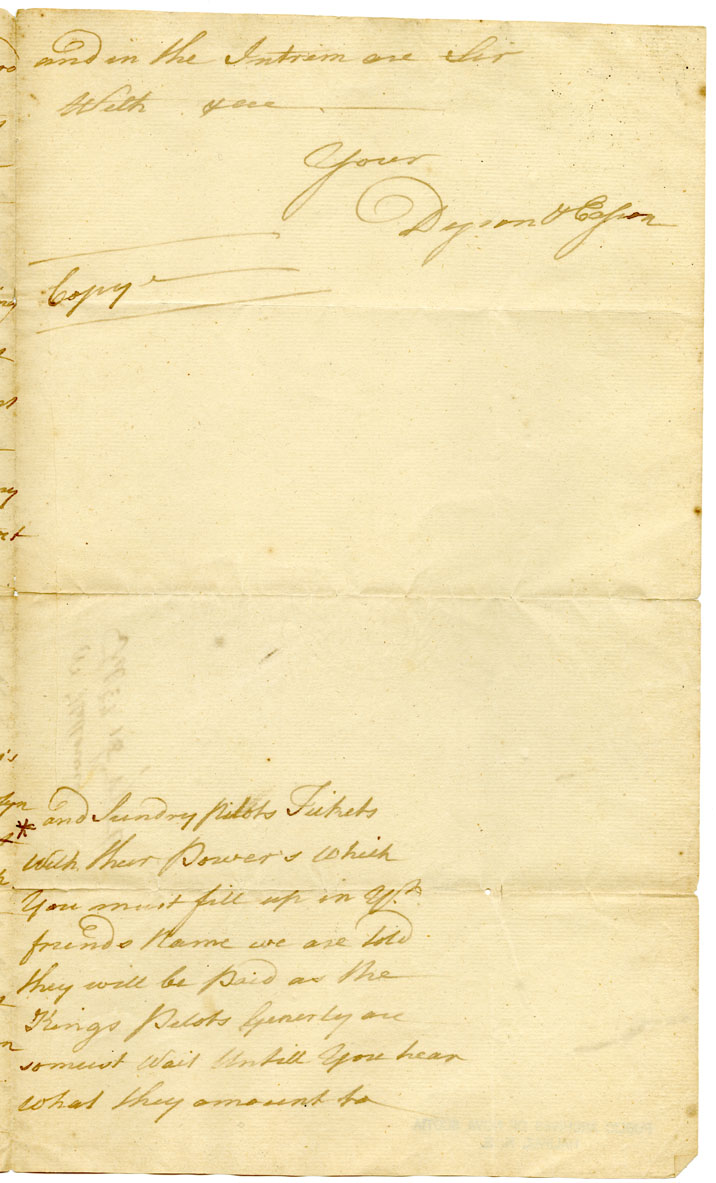 and in the Intrim are Sir
With &ce
Your
Dyson &
Copy
* and Sundry pilots Tickets
with their Power's which
You must fill up in Yr.
friends Name we are told
they will be paid as the
Kings Pilots Generly are
so must Wait Untill You hear
what they amount to